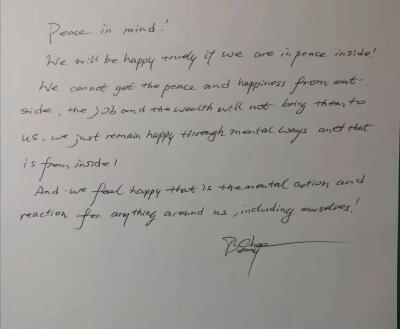 Peace in mind!
We will be happy truely if we are in peace inside!
We cannot get the peace and happiness from out-
side, the job and the wealth will not bring them to
us, we just remain happy through mental ways and that
is from inside!
And we feel happy that is the mental action and
reaction for anything around us, including ourselves!